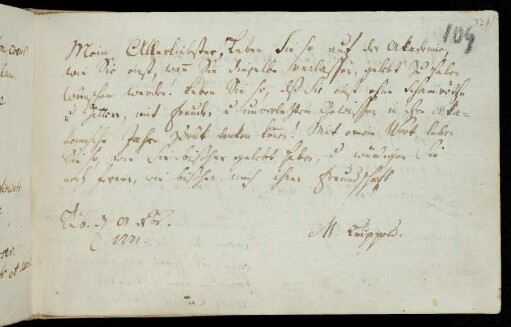 109
Mein Allerliebster, Leben Sie so auf der Akademie,
wie Sie einst, wann Sie dieselbe verlassen, gelebt zu haben
wünschen werden! Leben Sie so, daß Sie einst ohne Schamröthe
u. Zittern, mit Freuden u. unverleztem Gewissen in Ihre Aka-
demische Jahre zurük denken können! Mit einem Wort leben
Sie so, wie Sie bisher gelebt haben, u. würdigen Sie
noch ferner, wie bisher mich ihrer Freundschaft
Tüb. d.
1771.
M.